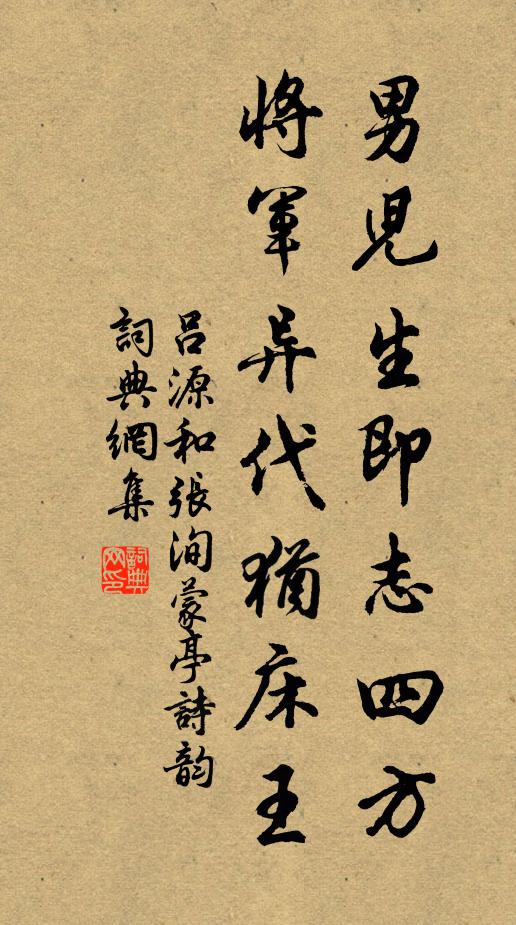 男兒生即志四方
將軍异代猶床王
吕源和張洵蒙亭詩韵
詞典網集
詞典
网印